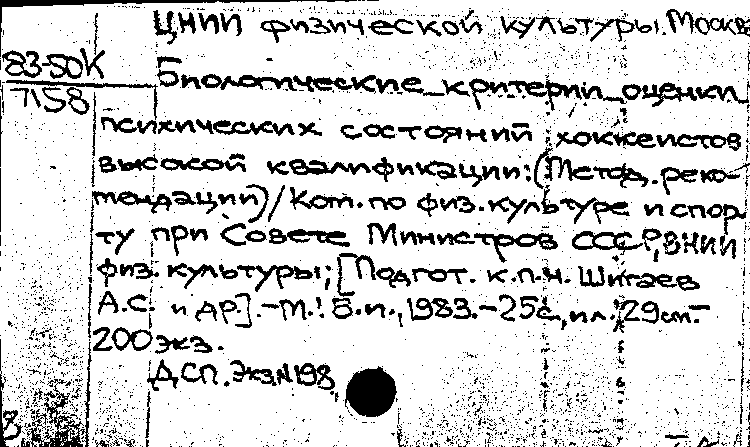 ЦНИИ физической культуры. Москва
83-50К
7158
Биологические критерии оценки
психических состояний хоккеистов
высокой квалификации: (Метод. реко-
мендации) / Ком. по физ. культуре и спор-
ту при Совете Министров СССР, ВНИИ
физ. культуры; [Подгот. к.п.н. Шигаев
А.С. и др.]. - М.: Б.и., 1983. - 25с., ил.; 29см. -
200 экз.
ДСП. Экз.N198